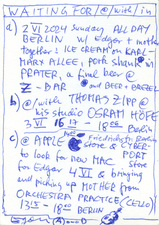 WAITING FOR/@/with/in
a) 2 VI 2024 Sunday ALL DAY
BERLIN w/ Edgar + mother
together: ICE CREAM on KARL
MARX ALLEE, pork shank in
PRATER, a final beer @
Z-BAR and BEER + BREZEL
b) @/with THOMAS ZIPP @
his studio OSRAM HÖFE
3 VI 16 17 - 18 00 Berlin
c) @ APPLE Friedrichstr. Berlin
store & CYBER-
PORT
to look for new MAC Store
for Edgar 4 VI & bringing
and picking up MOTHER from
ORCHESTRA PRACTICE (CELLO)
13 15 - 18 40 BERLIN